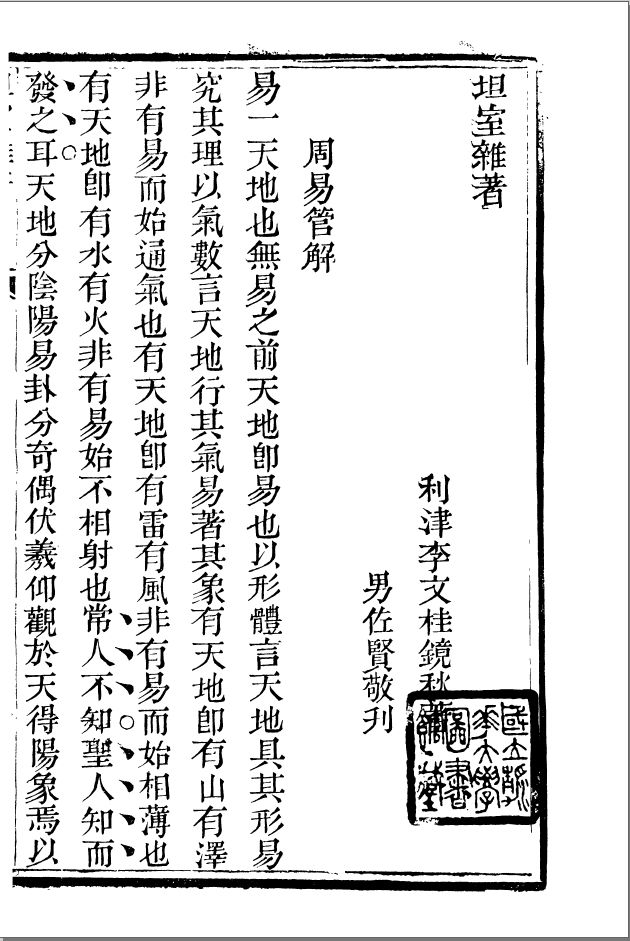 坦室雜著
利津李文桂鏡秋
男佐賢敬刊
周易管解
易一天地也無易之前天地卽易也以形體言天地具其形易
究其理以氣數言天地行其氣易著其象有天地卽有山有澤
非有易而始通氣也有天地卽有雷有風非有易而始相薄也
有天地卽有水有火非有易始不相射也常人不知聖人知而
發之耳天地分陰陽易卦分奇偶伏羲仰觀於天得陽象焉以
國立清華大學圖書館藏